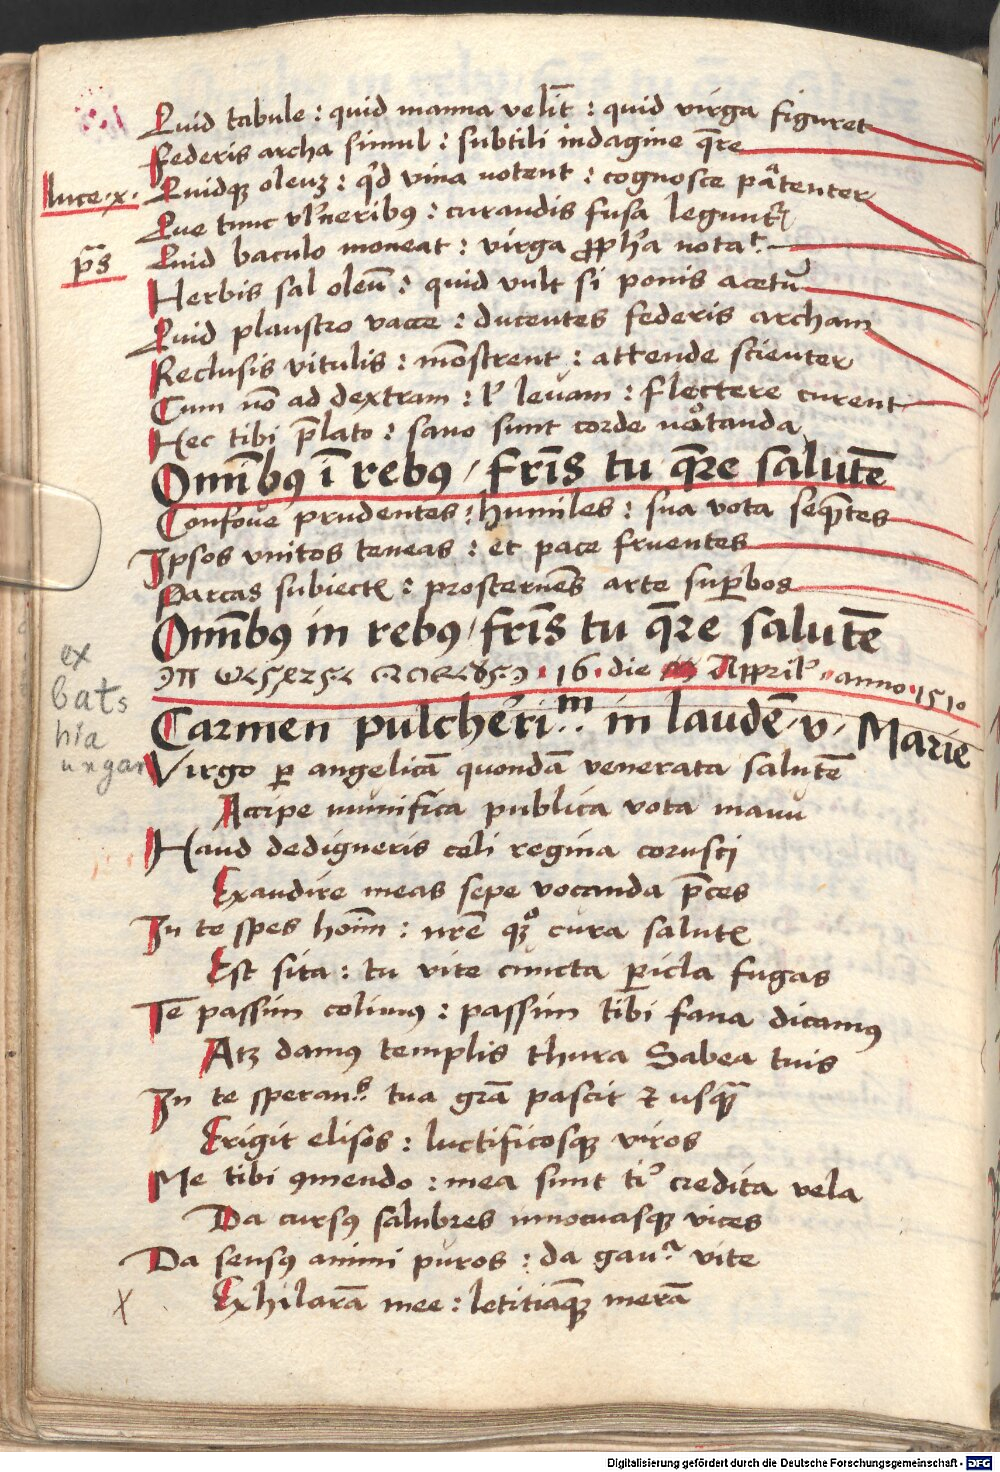 Quid tabule : quid manna velit̄ : quid virga figuret
Federis archa simul : subtili indagine q̄re
luce . x .
Quidqꝫ oleuꝫ : qͥd vina notent : cognosce pᵃtenter
Que tunc vl'neribꝰ : curandis fusa leguntͬ
p̄s
Quid baculo moneat : virga ꝓph'a notaᵗ
Herbis sal oleū : quid vult si ponis acetū
Quid plaustro vacce : ducentes federis archam
Reclusis vitulis : mōstrent : attende scienter
Cum nō ad dextram : lʼ levam : flectere curent
Hec tibi p̄lato : sano sunt corde notanda
Omnībꝰ ī rebꝰ / frīs tu q̄re salutē
Confove prudentes : humiles : sua vota seq̄tes
Ipsos vnitos teneas : et pace fruentes
Parcas subiectꝭ : prosternēs arte suꝑbos
Omnībꝰ in rebꝰ / frīs tu q̄re salutē
16 . die Apprilʼ . anno . 1510
ex
bats
hia
ungar
Carmen pulcherriᵐ : in laudē . v . Marie
Virgo ꝑ angelicā quondā venerata salutē
Accipe munifica publica vota manu
Haud dedigneris celi regina corusci
Exaudire meas sepe vocanda p̄ces
In te spes hoīm : nrē qꝫ° cura salutꝭ
Est sita : tu vite cuncta ꝑicla fugas
Te passim colimus : passim tibi fana dicamꝰ
Atꝫ damꝰ templis thura Sabea tuis
In te speranˢ : tua grā pascit ⁊ usqꝫ
Erigit elisos : luctificosqꝫ viros
Me tibi ꝯmendo : mea sunt tⁱ credita vela
Da cursꝰ salubres innocuasqꝫ vices
Da sensꝰ animi puros : da gauᵃ vite
Exhilarā mee : letitiāqꝫ merā
X
Digitalisierung gefördert durch die Deutsche Forschungsgemeinschaft - DFG